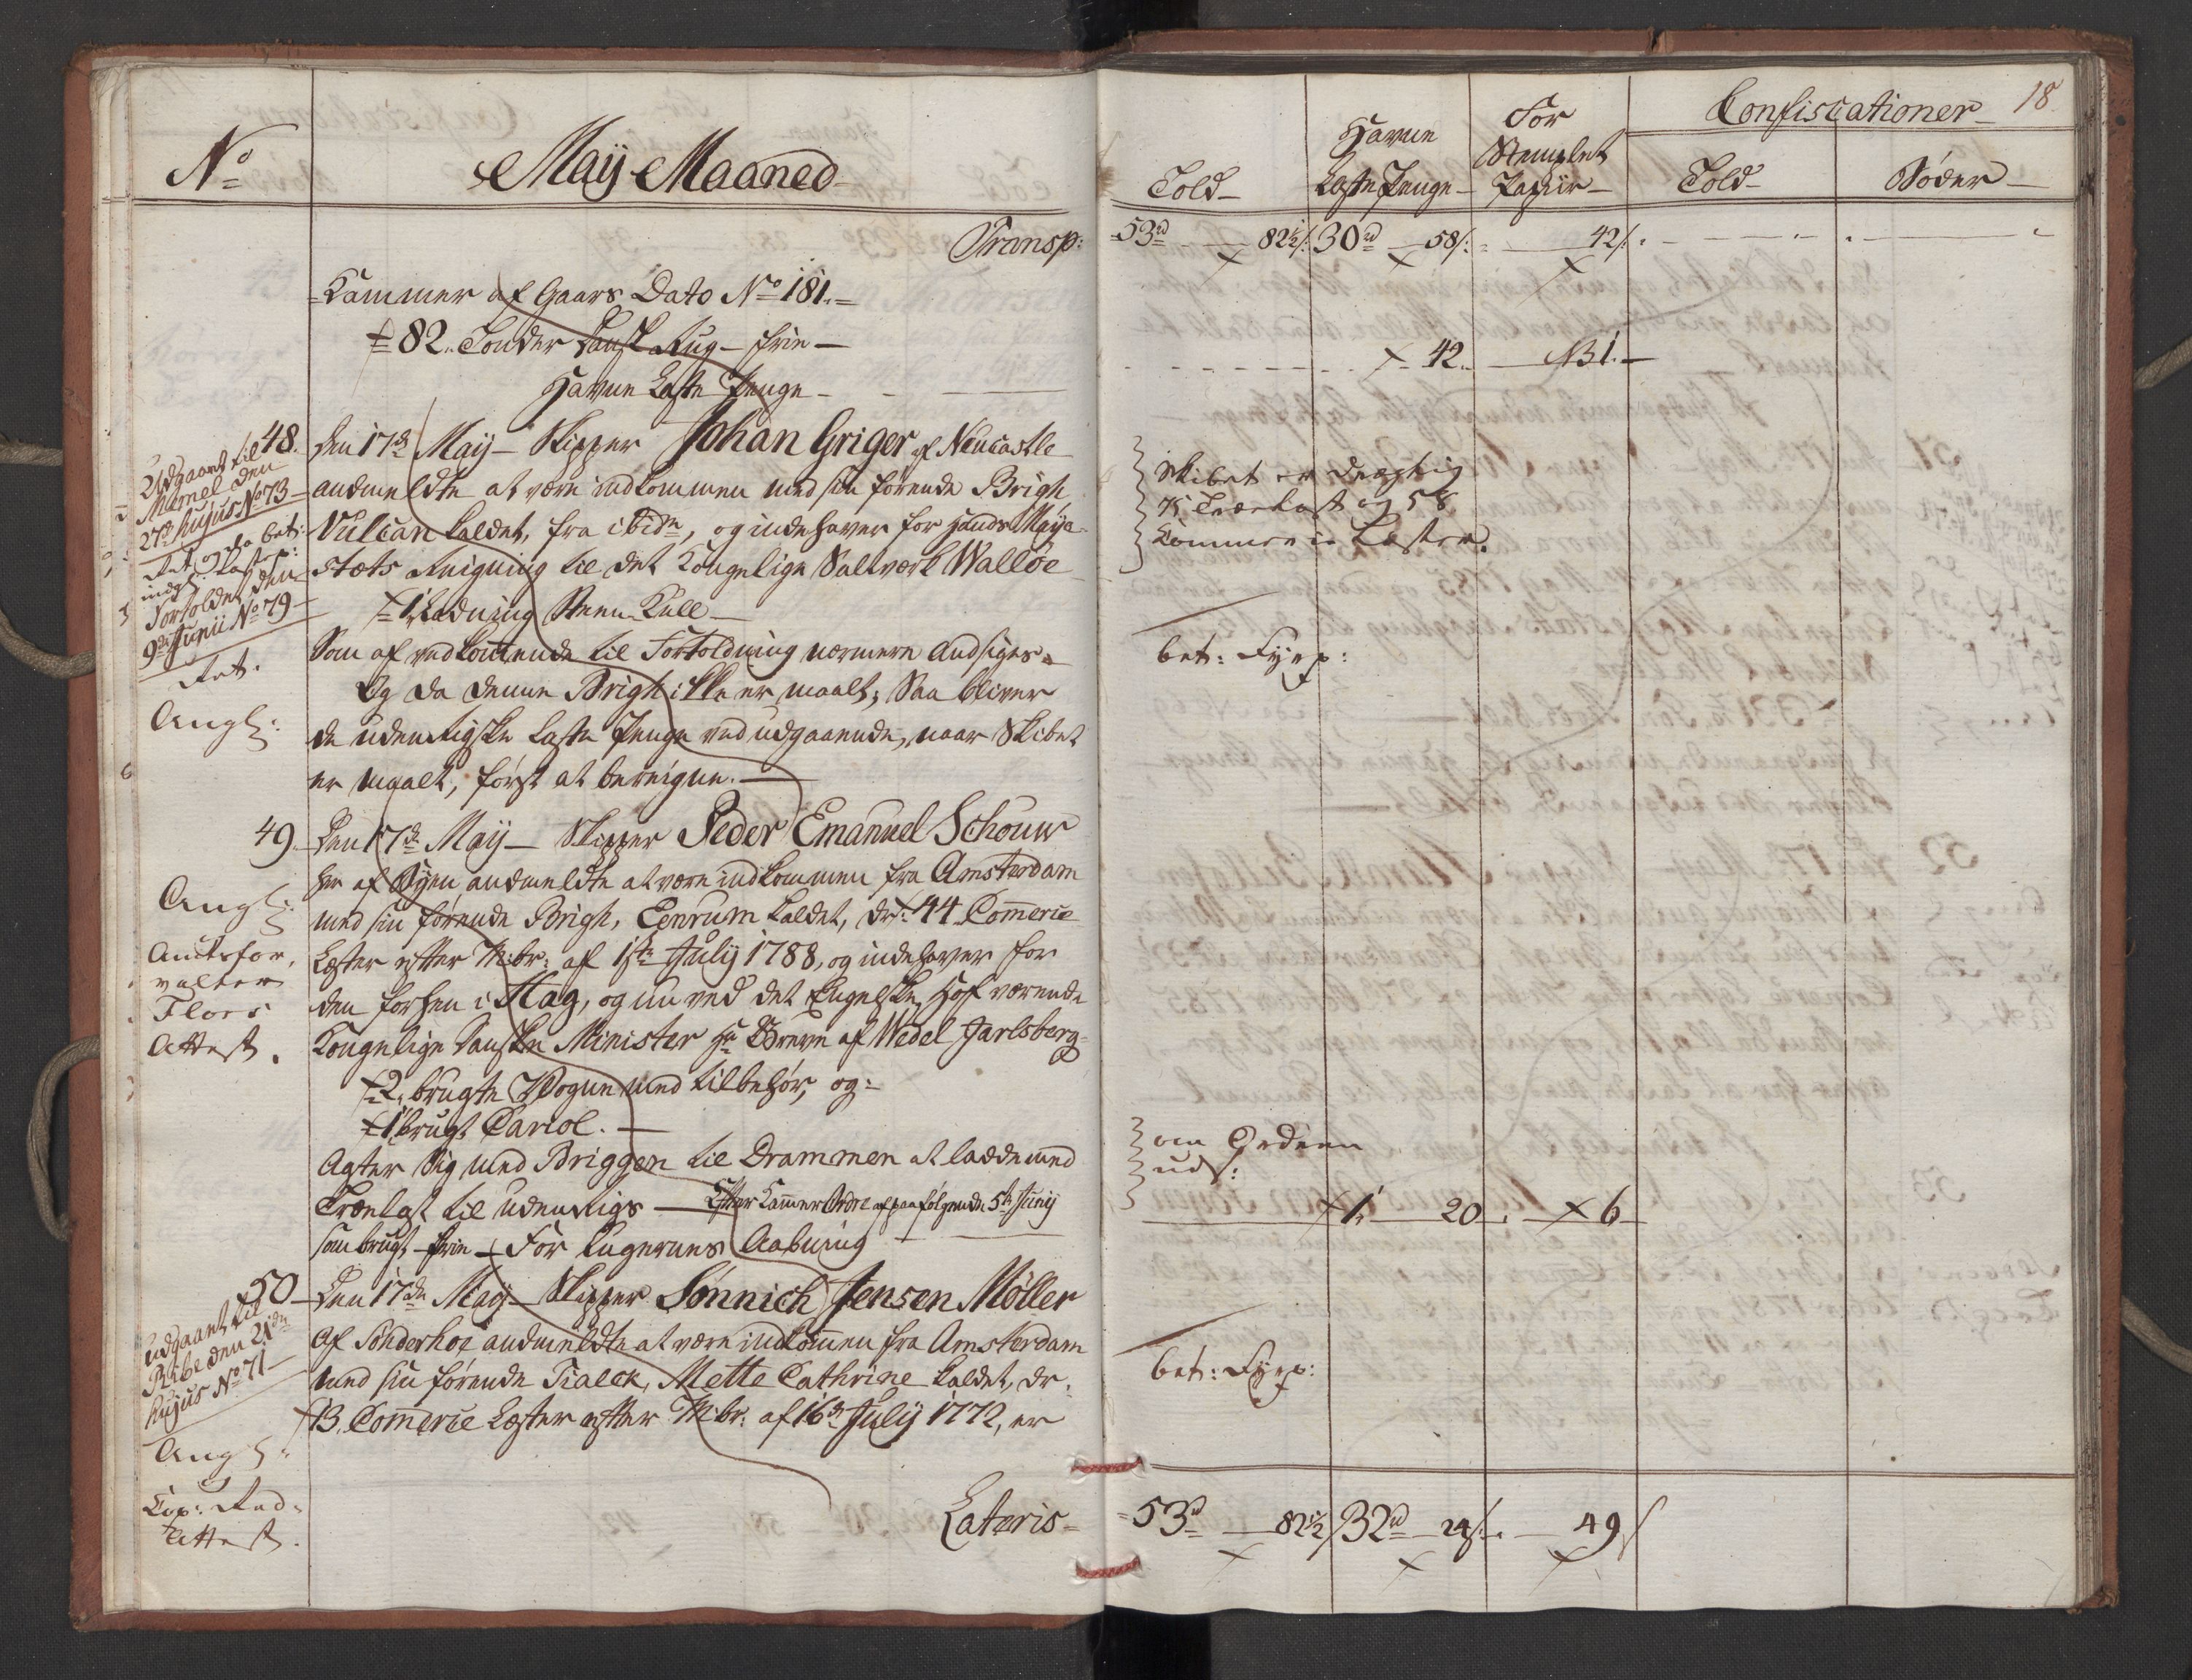 No
Maij Maaned
Transp:
Kammer af Gaars Dato No 181.
82. Tønder Dansk Rug - frie -
Havne Laste Penge -
48.
Udgaaet til
Memel den
27de hujus No 73
Fortoldet den
9de Junii No 79
Ret.
Angl:
Den 17de Maij - Skipper Johan Griger af Neucastle
andmeldte at være indkommen med sin førende Brigh
Vulcan kaldet, fra ibidm, og indehaver for Hands Maije-
stæts Reigning til det Kongelige Saltværk Walløe
1 Ladning Steen Kull -
Som af vedkomende til Fortoldning nermere andsiges.
Og da denne Brigh ikke er maalt; Saa bliver
de udenrigske Laste Penge ved udgaaende, naar Skibet
er maalt, først at bereigne. -
49.
Angl:
Amtsfor,
valter
Flors
Attest.
Den 17de Maij - Skipper Peder Emanuel Schouw
her af Byen andmeldte at være indkommen fra Amsterdam
med sin førende Brigh, Eenrum kaldet, dr: 44 Comerce
Læster efter M:br: af 1ste Julij 1788, og indehaver for
den forhen i Hag, og nu ved det Engelske Hof værende
Kongelige Danske Minister Hr Greve af Wedel Jarlsberg
2. brugte Wogne med tilbehør, og:
1 brugt Cariol. -
Agter sig med Briggen til Drammen at ladde med
Trælast til udenrigs - Efter Kammer Ordre af paafølgende 5te Junij
som brugt frie - For Lugernes Aabning -
50
udgaaet til
Ribe den 21de
hujus No 71
Angl:
Cop: Rad-
Attest.
Den 17de Maij - Skipper Sønnich Jensen Møller
af Sønderhoe andmeldte at være indkommen fra Amsterdam
med sin førende Tialck, Mette Cathrine kaldet, dr.
13. Comerce Læster efter M:br. af 16de Julij 1772, er
Lateris
18
Confiscationer
Told
Havne
Laste Penge
For
Stemplet
Papiir
Told
Bøder
53rd 82½/: 30rd 58/: 42/:
42. 1.
Skibet er drægtig
75 Trælast og 58
Commerce Læster.
bet: Fyrp:
1. 20. 6
bet: Fyrp:
53rd 82½/ 32rd 24/: 49/